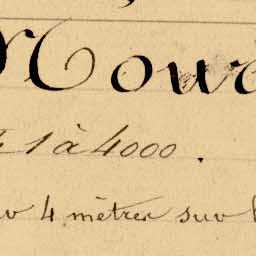 Mour
1 à 4000.
4 mètres sur